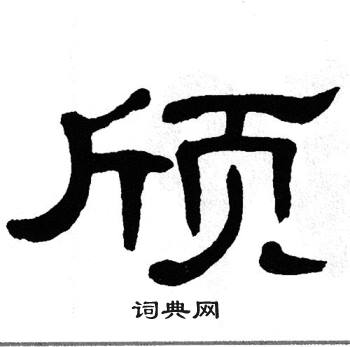 颀
词典网